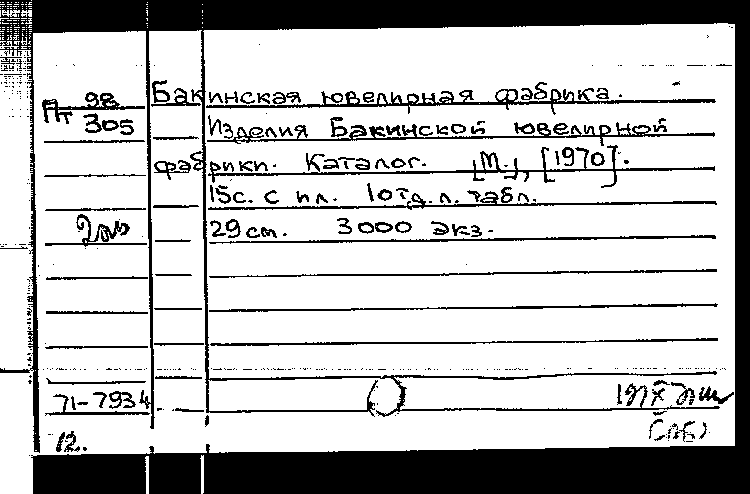 Пт 98 Бакинская ювелирная фабрика.
305 Изделия Бакинской ювелирной
фабрики. Каталог. [М.], [1970].
15с. с ил. 1 отд. л. табл.
29 см. 3000 экз.
71-7934
12.